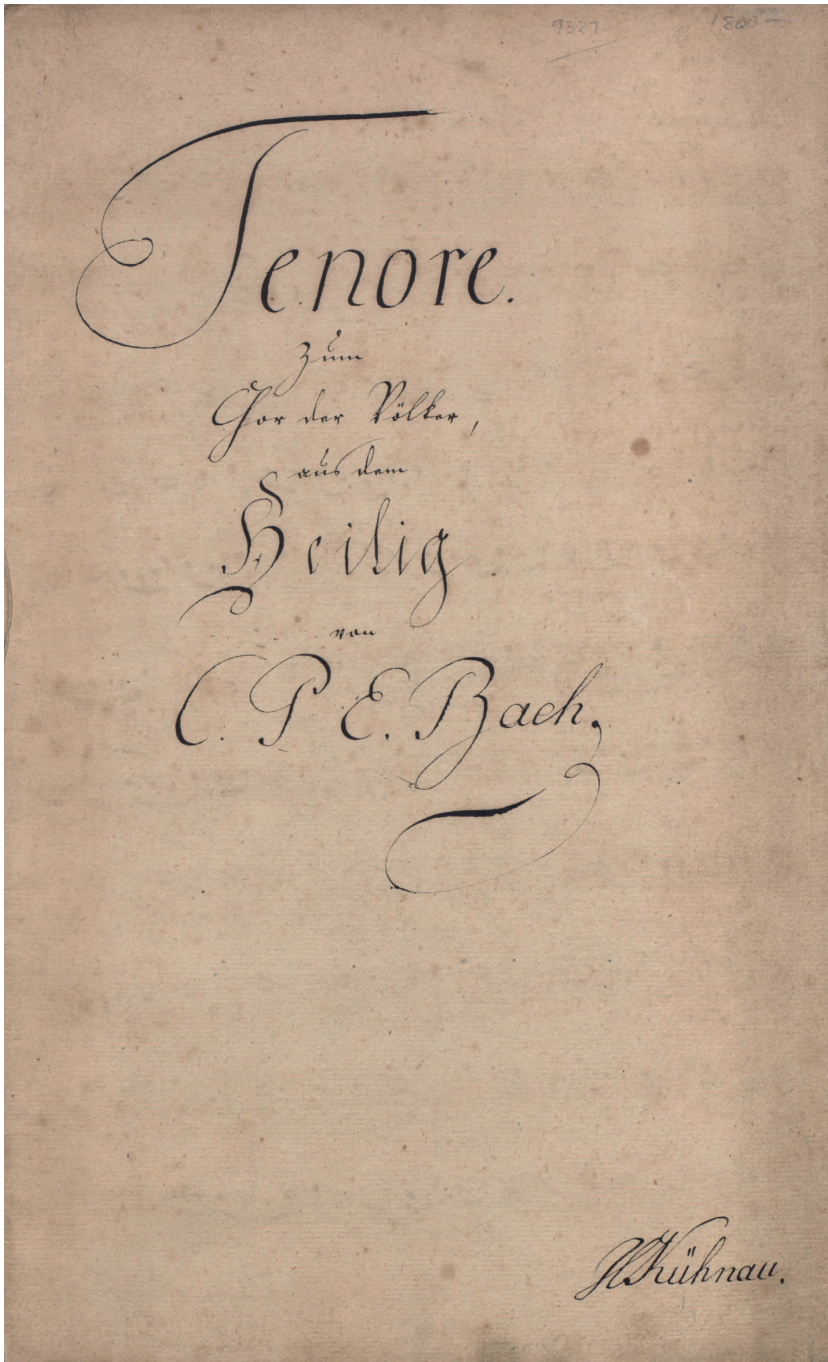 9327
Tenore.
zum
Chor der Völker,
aus dem
Heilig
von
C. P. E. Bach.
Kühnau.